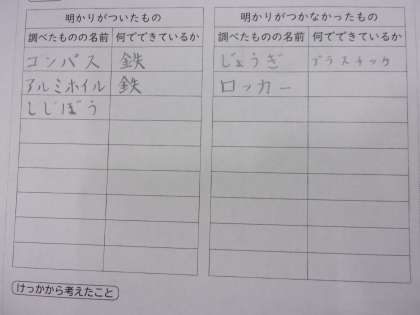 明かりがついたもの
調べたものの名前 何でできているか
コンパス 鉄
アルミホイル 鉄
しじぼう
明かりがつかなかったもの
調べたものの名前 何でできているか
じょうぎ プラスチック
ロッカー
けっかから考えたこと